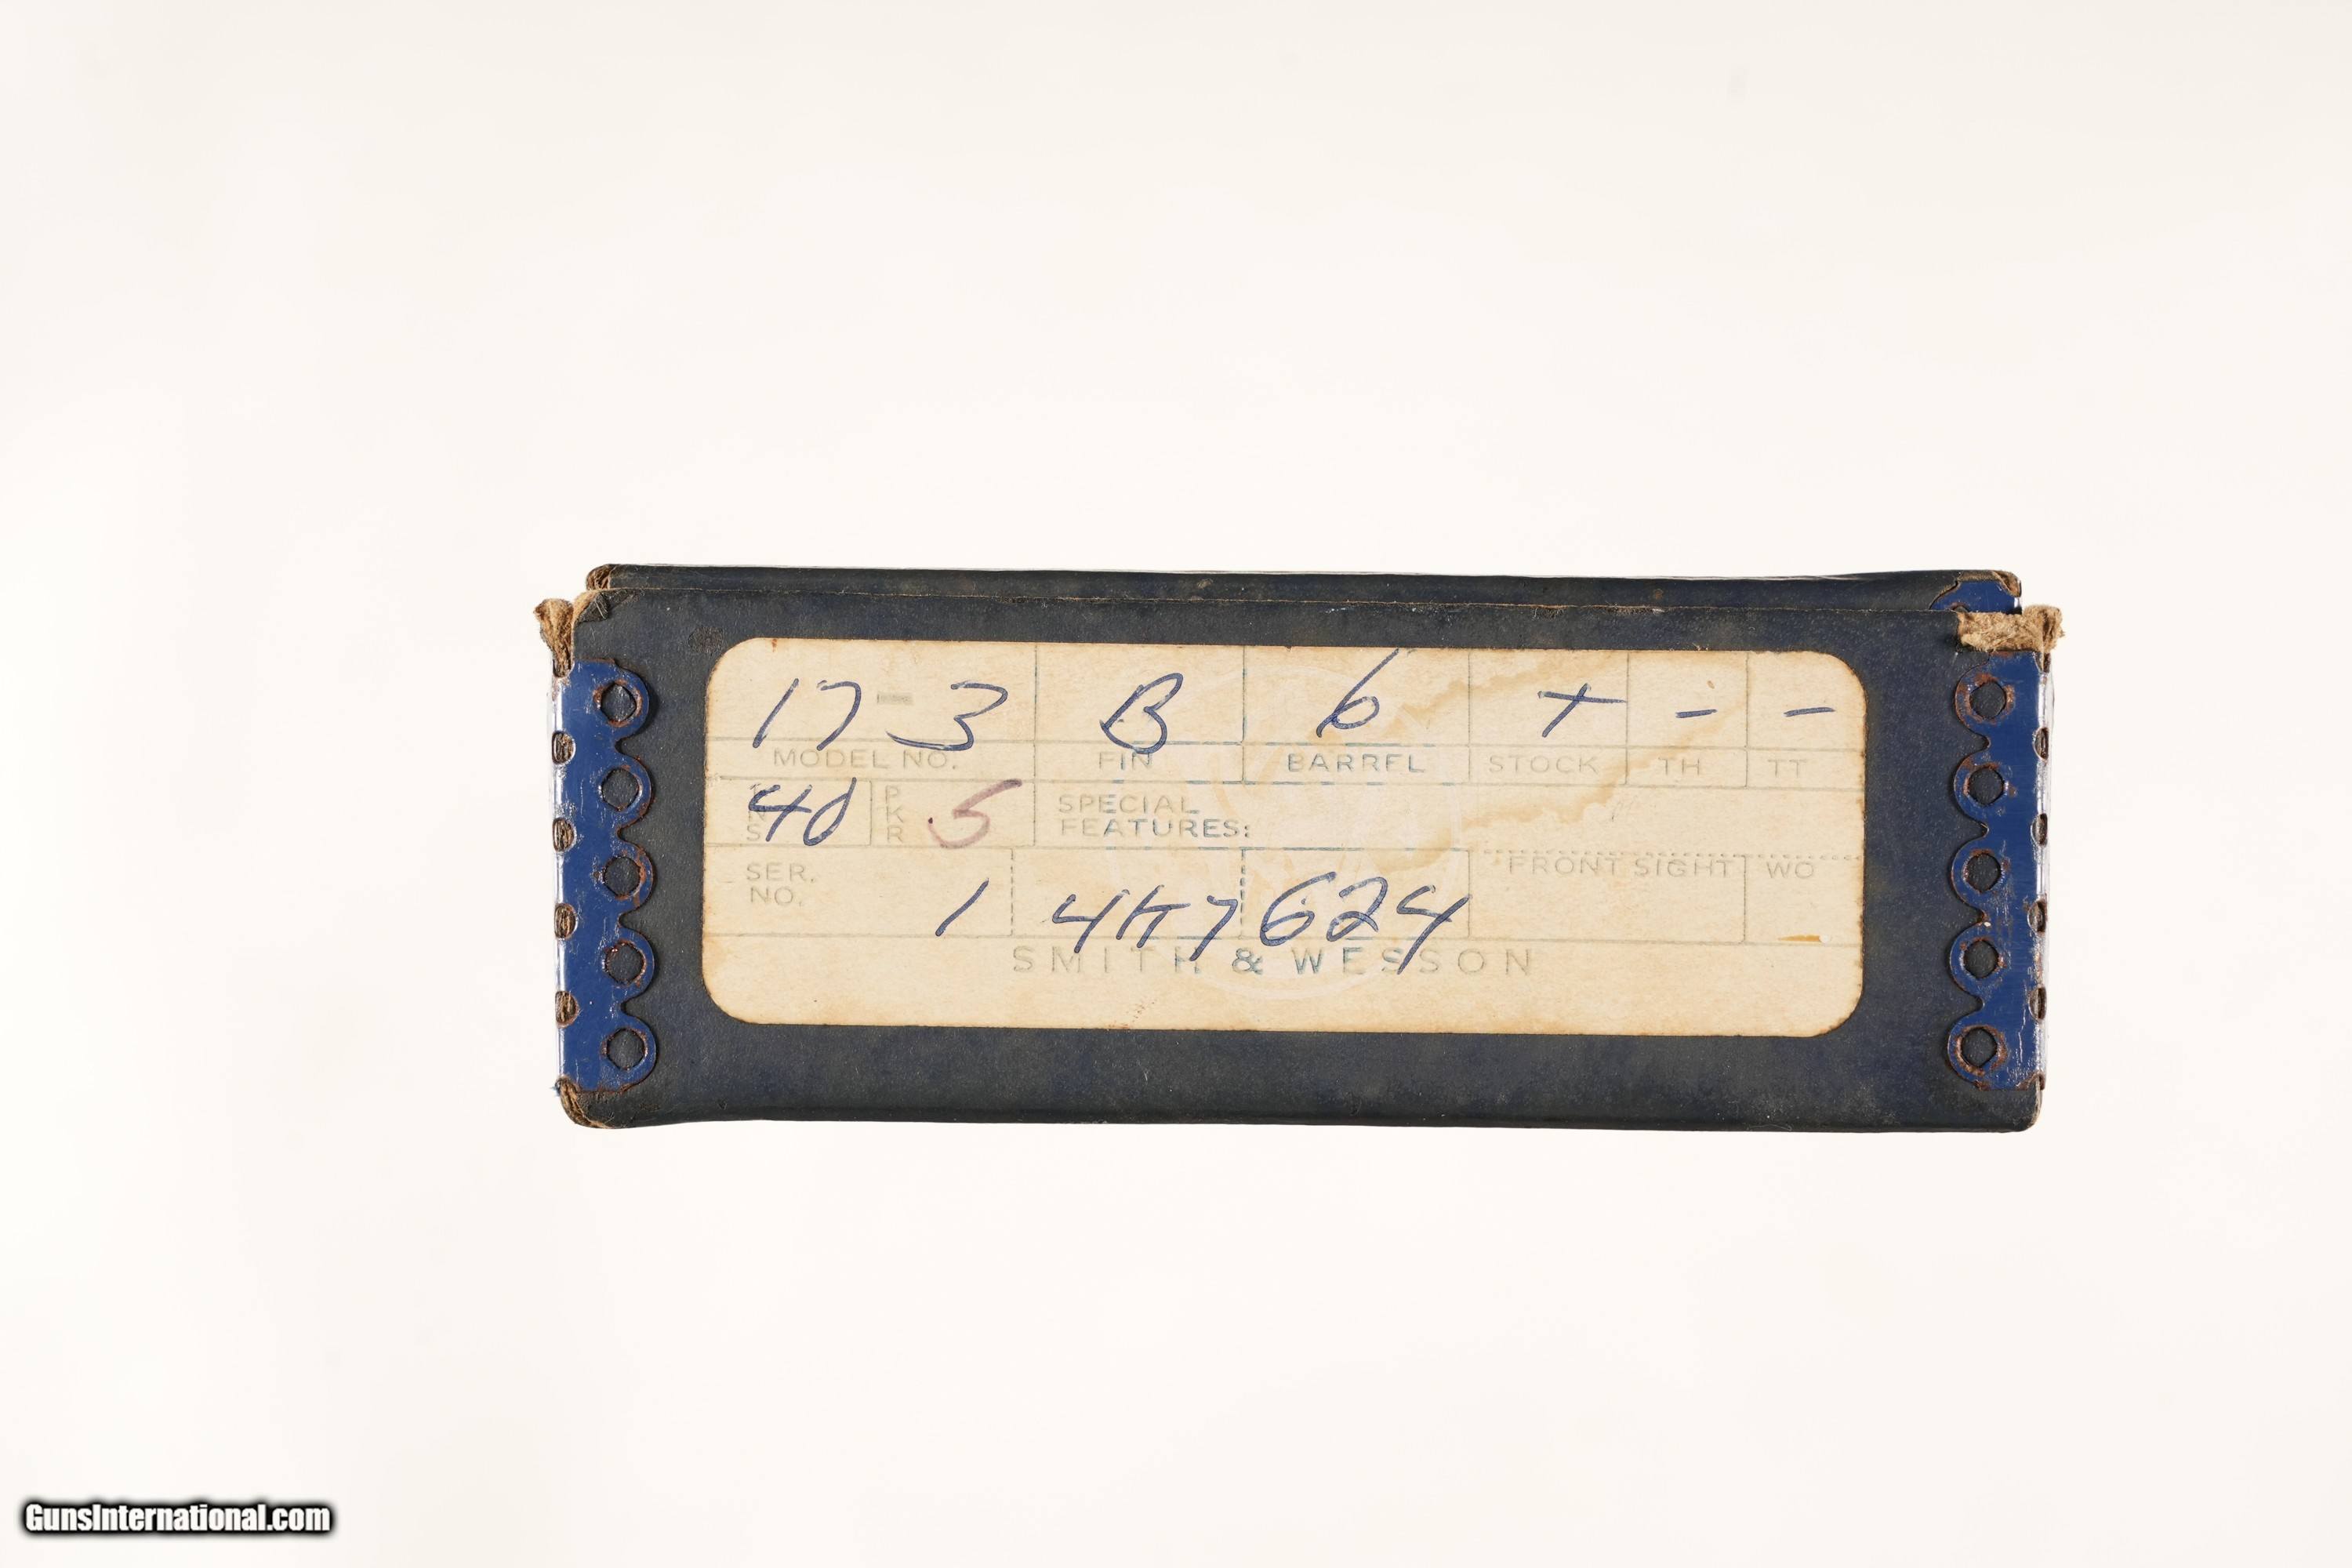 17-3 B 6 + - -
MODEL NO. FIN BARREL STOCK TH TT
40 PKR 5 SPECIAL
FEATURES:
SER. FRONT SIGHT WO
NO. 1 4K7624
SMITH & WESSON
GunsInternational.com